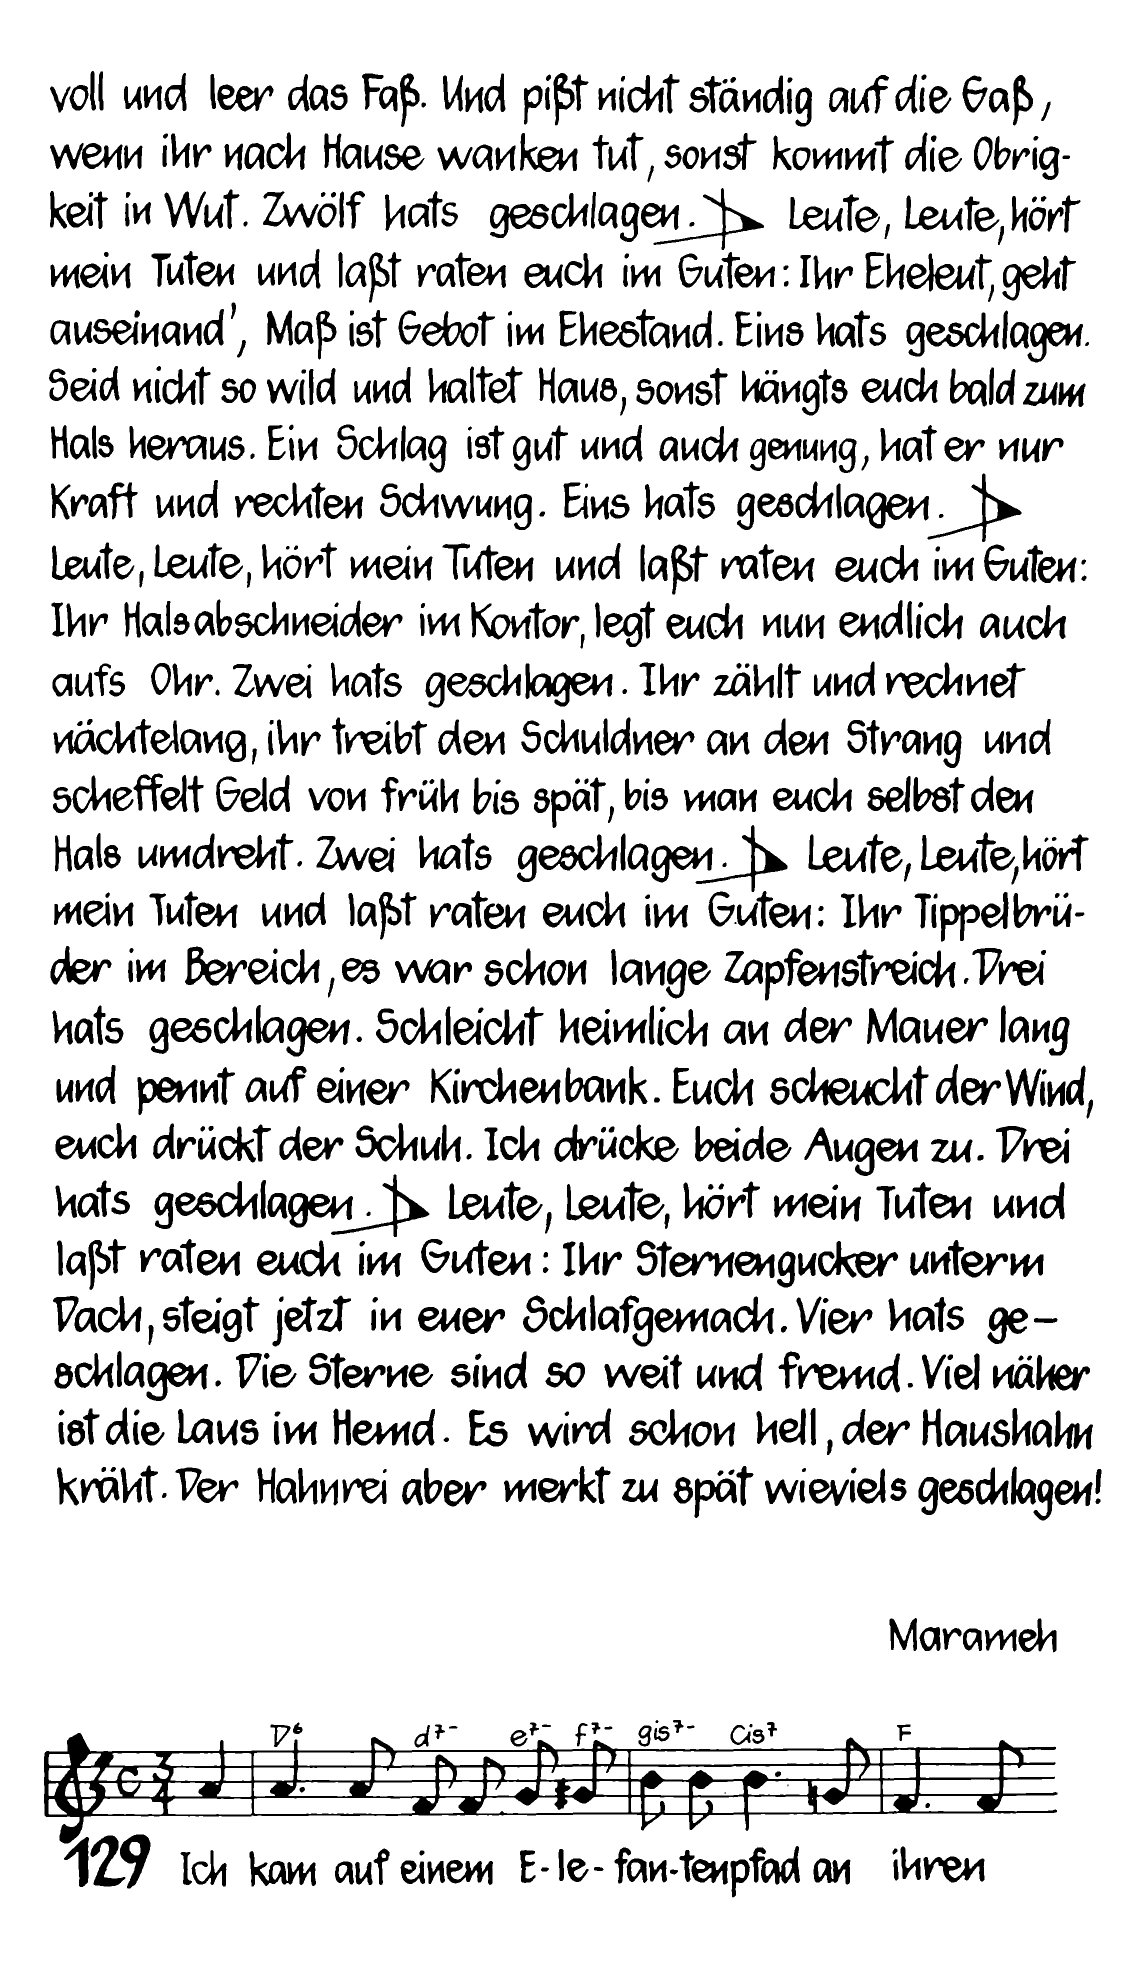 voll und leer das Faß. Und pißt nicht ständig auf die Gaß,
wenn ihr nach Hause wanken tut, sonst kommt die Obrig-
keit in Wut. Zwölf hats geschlagen. Leute, Leute, hört
mein Tuten und laßt raten euch im Guten: Ihr Eheleut, geht
auseinand', Maß ist Gebot im Ehestand. Eins hats geschlagen.
Seid nicht so wild und haltet Haus, sonst hängts euch bald zum
Hals heraus. Ein Schlag ist gut und auch genung, hat er nur
Kraft und rechten Schwung. Eins hats geschlagen.
Leute, Leute, hört mein Tuten und laßt raten euch im Guten:
Ihr Halsabschneider im Kontor, legt euch nun endlich auch
aufs Ohr. Zwei hats geschlagen. Ihr zählt und rechnet
nächtelang, ihr treibt den Schuldner an den Strang und
scheffelt Geld von früh bis spät, bis man euch selbst den
Hals umdreht. Zwei hats geschlagen. Leute, Leute, hört
mein Tuten und laßt raten euch im Guten: Ihr Tippelbrü-
der im Bereich, es war schon lange Zapfenstreich. Drei
hats geschlagen. Schleicht heimlich an der Mauer lang
und pennt auf einer Kirchenbank. Euch scheucht der Wind,
euch drückt der Schuh. Ich drücke beide Augen zu. Drei
hats geschlagen. Leute, Leute, hört mein Tuten und
laßt raten euch im Guten: Ihr Sternengucker unterm
Dach, steigt jetzt in euer Schlafgemach. Vier hats ge-
schlagen. Die Sterne sind so weit und fremd. Viel näher
ist die Laus im Hemd. Es wird schon hell, der Haushahn
kräht. Der Hahnrei aber merkt zu spät wieviels geschlagen!
Marameh
D6 d7- e7- f7- gis7- Cis7 F
C 3/4
129 Ich kam auf einem E-le-fan-tenpfad an ihren